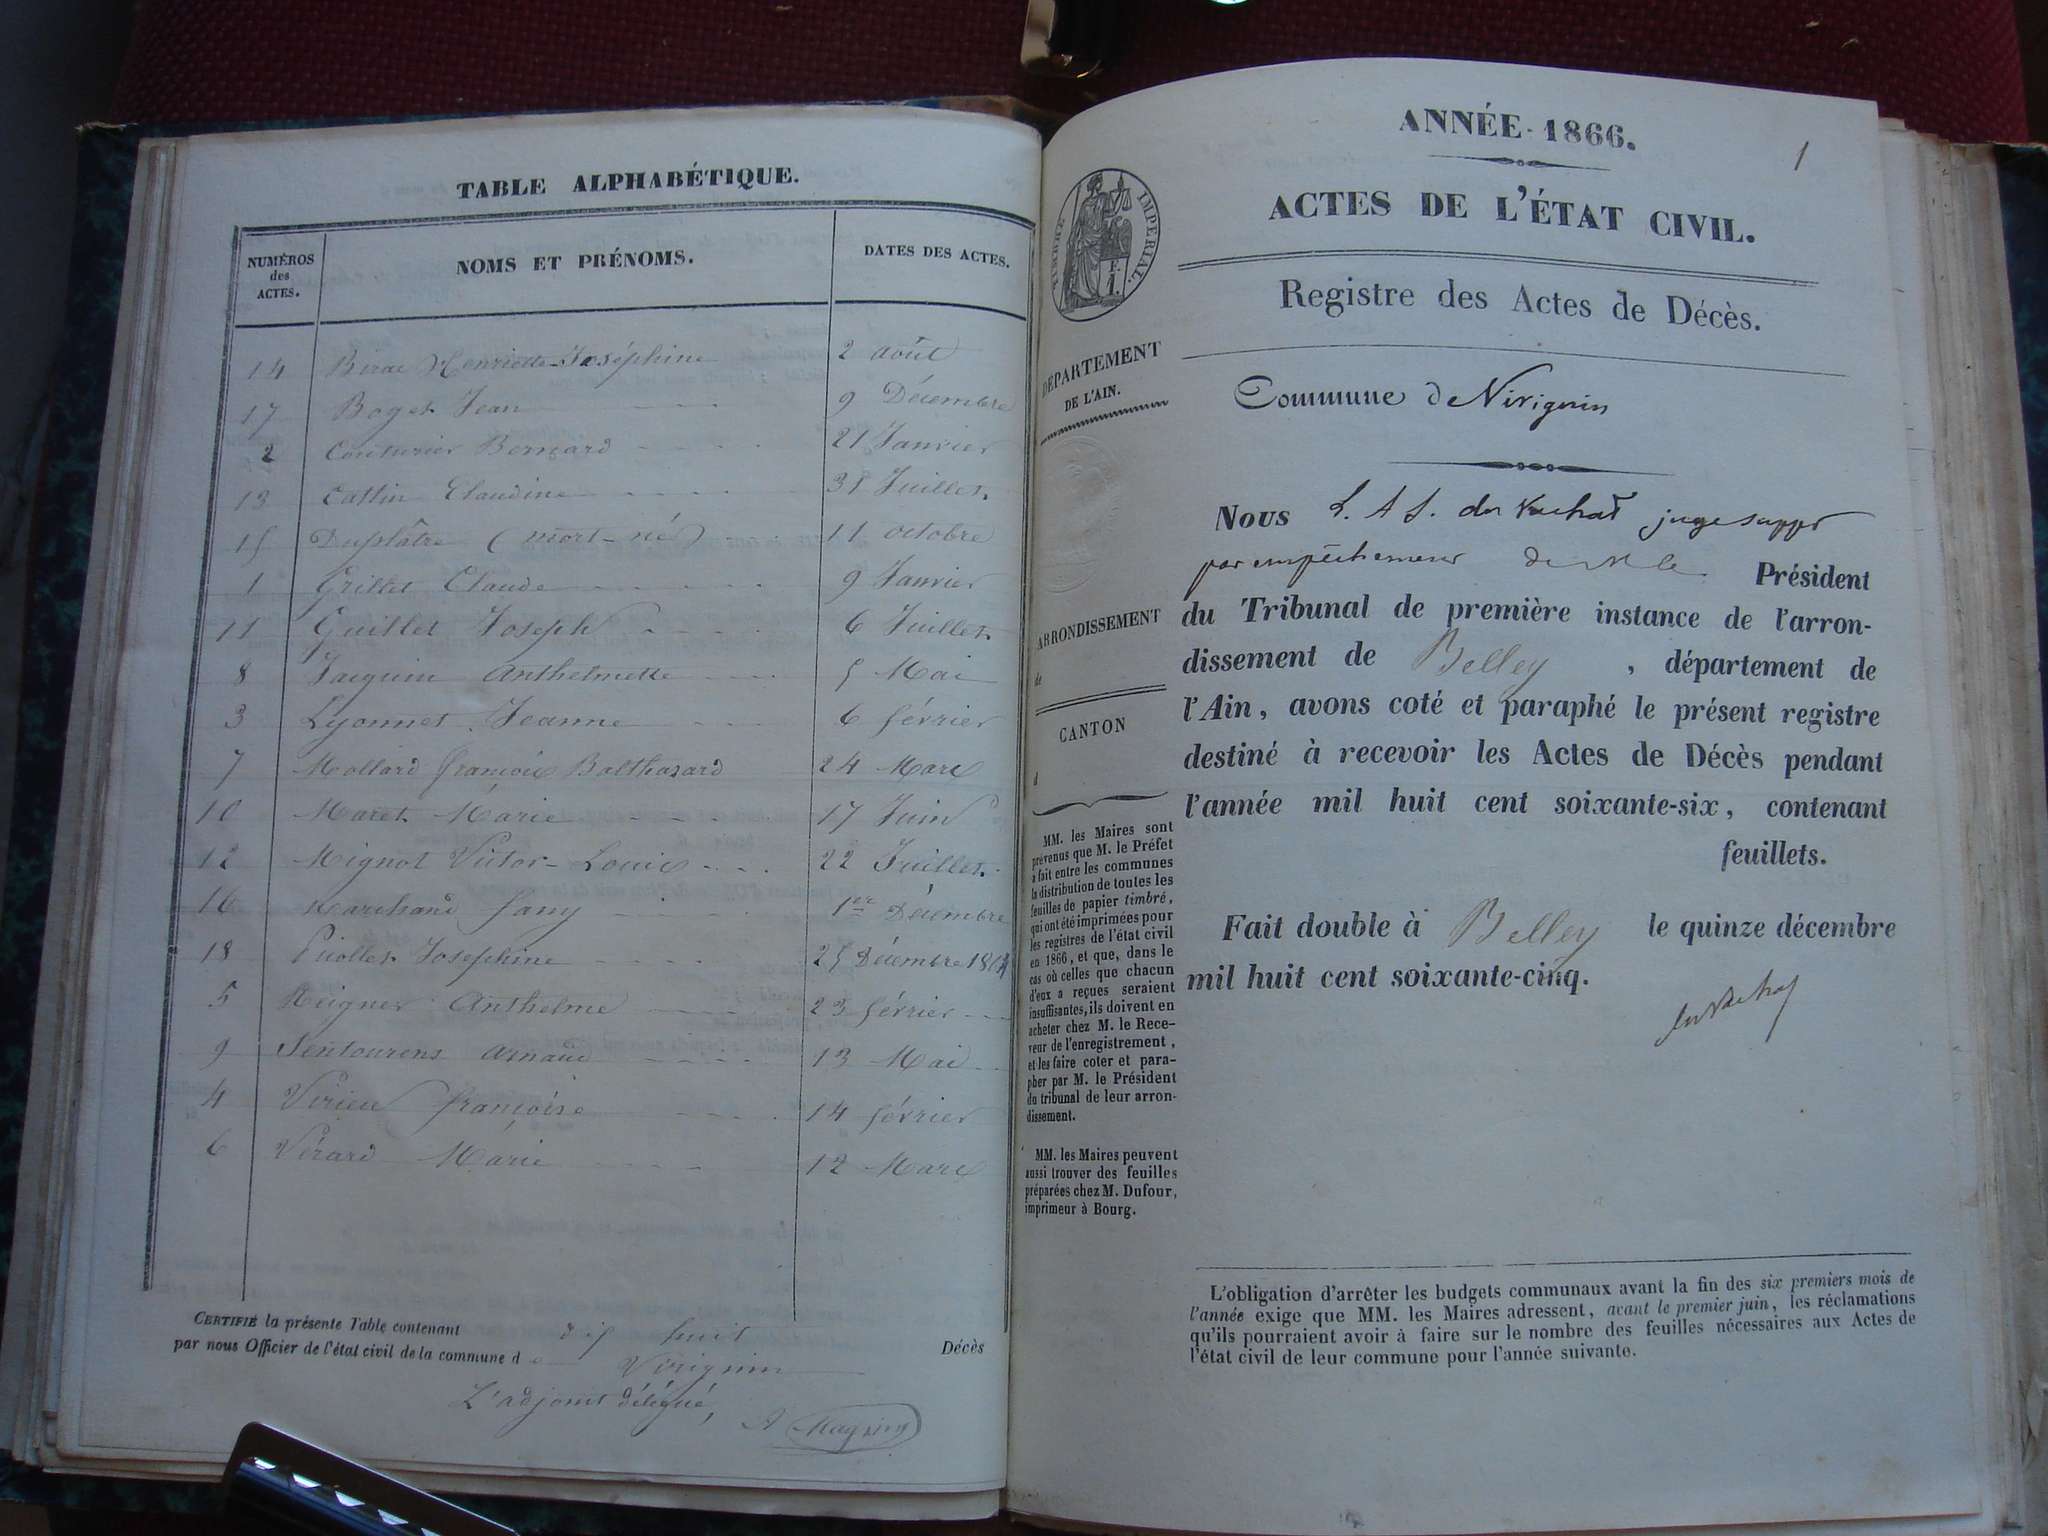 TABLE ALPHABÉTIQUE.
NUMÉROS des ACTES. NOMS ET PRÉNOMS. DATES DES ACTES.
14 Henriette-Joséphine 2 août
17 Boget Jean 9 Décembre
2 Couturier Bernard 21 Janvier
13 Cattin Claudine 31 Juillet
15 Duplâtre (mort-né) 11 octobre
1 Grillet Claude 9 Janvier
11 Guillet Joseph 6 Juillet
8 Jacquin Anthelmette 5 Mai
3 Lyonnet Jeanne 6 février
7 Mollard françois Balthazard 24 Mars
10 Maret Marie 17 Juin
12 Mignot Victor-Louis 22 Juillet
16 Marchand fany 1er Décembre
18 Josephine 25 Décembre
5 Anthelme 23 février
9 Sentourens Arnaud 13 Mai
4 Virieu françoise 14 février
6 Vérard Marie 12 Mars
CERTIFIÉ la présente Table contenant dix huit Décès
par nous Officier de l'état civil de la commune de Virignin
L'adjoint délégué,
ANNÉE 1866.
1
ACTES DE L'ÉTAT CIVIL.
TIMBRE IMPÉRIAL.
F. 1.
Registre des Actes de Décès.
DÉPARTEMENT
DE L'AIN.
Commune de Virignin
Nous L. A S. du Vachat juge supp
par empêchement de Président
du Tribunal de première instance de l'arron-
dissement de Belley, département de
l'Ain, avons coté et paraphé le présent registre
destiné à recevoir les Actes de Décès pendant
l'année mil huit cent soixante-six, contenant
feuillets.
Fait double à Belley le quinze décembre
mil huit cent soixante-cinq.
du Vachat
ARRONDISSEMENT
de
CANTON
d
MM. les Maires sont
prévenus que M. le Préfet
a fait entre les communes
la distribution de toutes les
feuilles de papier timbré,
qui ont été imprimées pour
les registres de l'état civil
en 1866, et que, dans le
cas où celles que chacun
d'eux a reçues seraient
insuffisantes, ils doivent en
acheter chez M. le Rece-
veur de l'enregistrement,
et les faire coter et para-
pher par M. le Président
du tribunal de leur arron-
dissement.
MM. les Maires peuvent
aussi trouver des feuilles
préparées chez M. Dufour,
imprimeur à Bourg.
L'obligation d'arrêter les budgets communaux avant la fin des six premiers mois de
l'année exige que MM. les Maires adressent, avant le premier juin, les réclamations
qu'ils pourraient avoir à faire sur le nombre des feuilles nécessaires aux Actes de
l'état civil de leur commune pour l'année suivante.